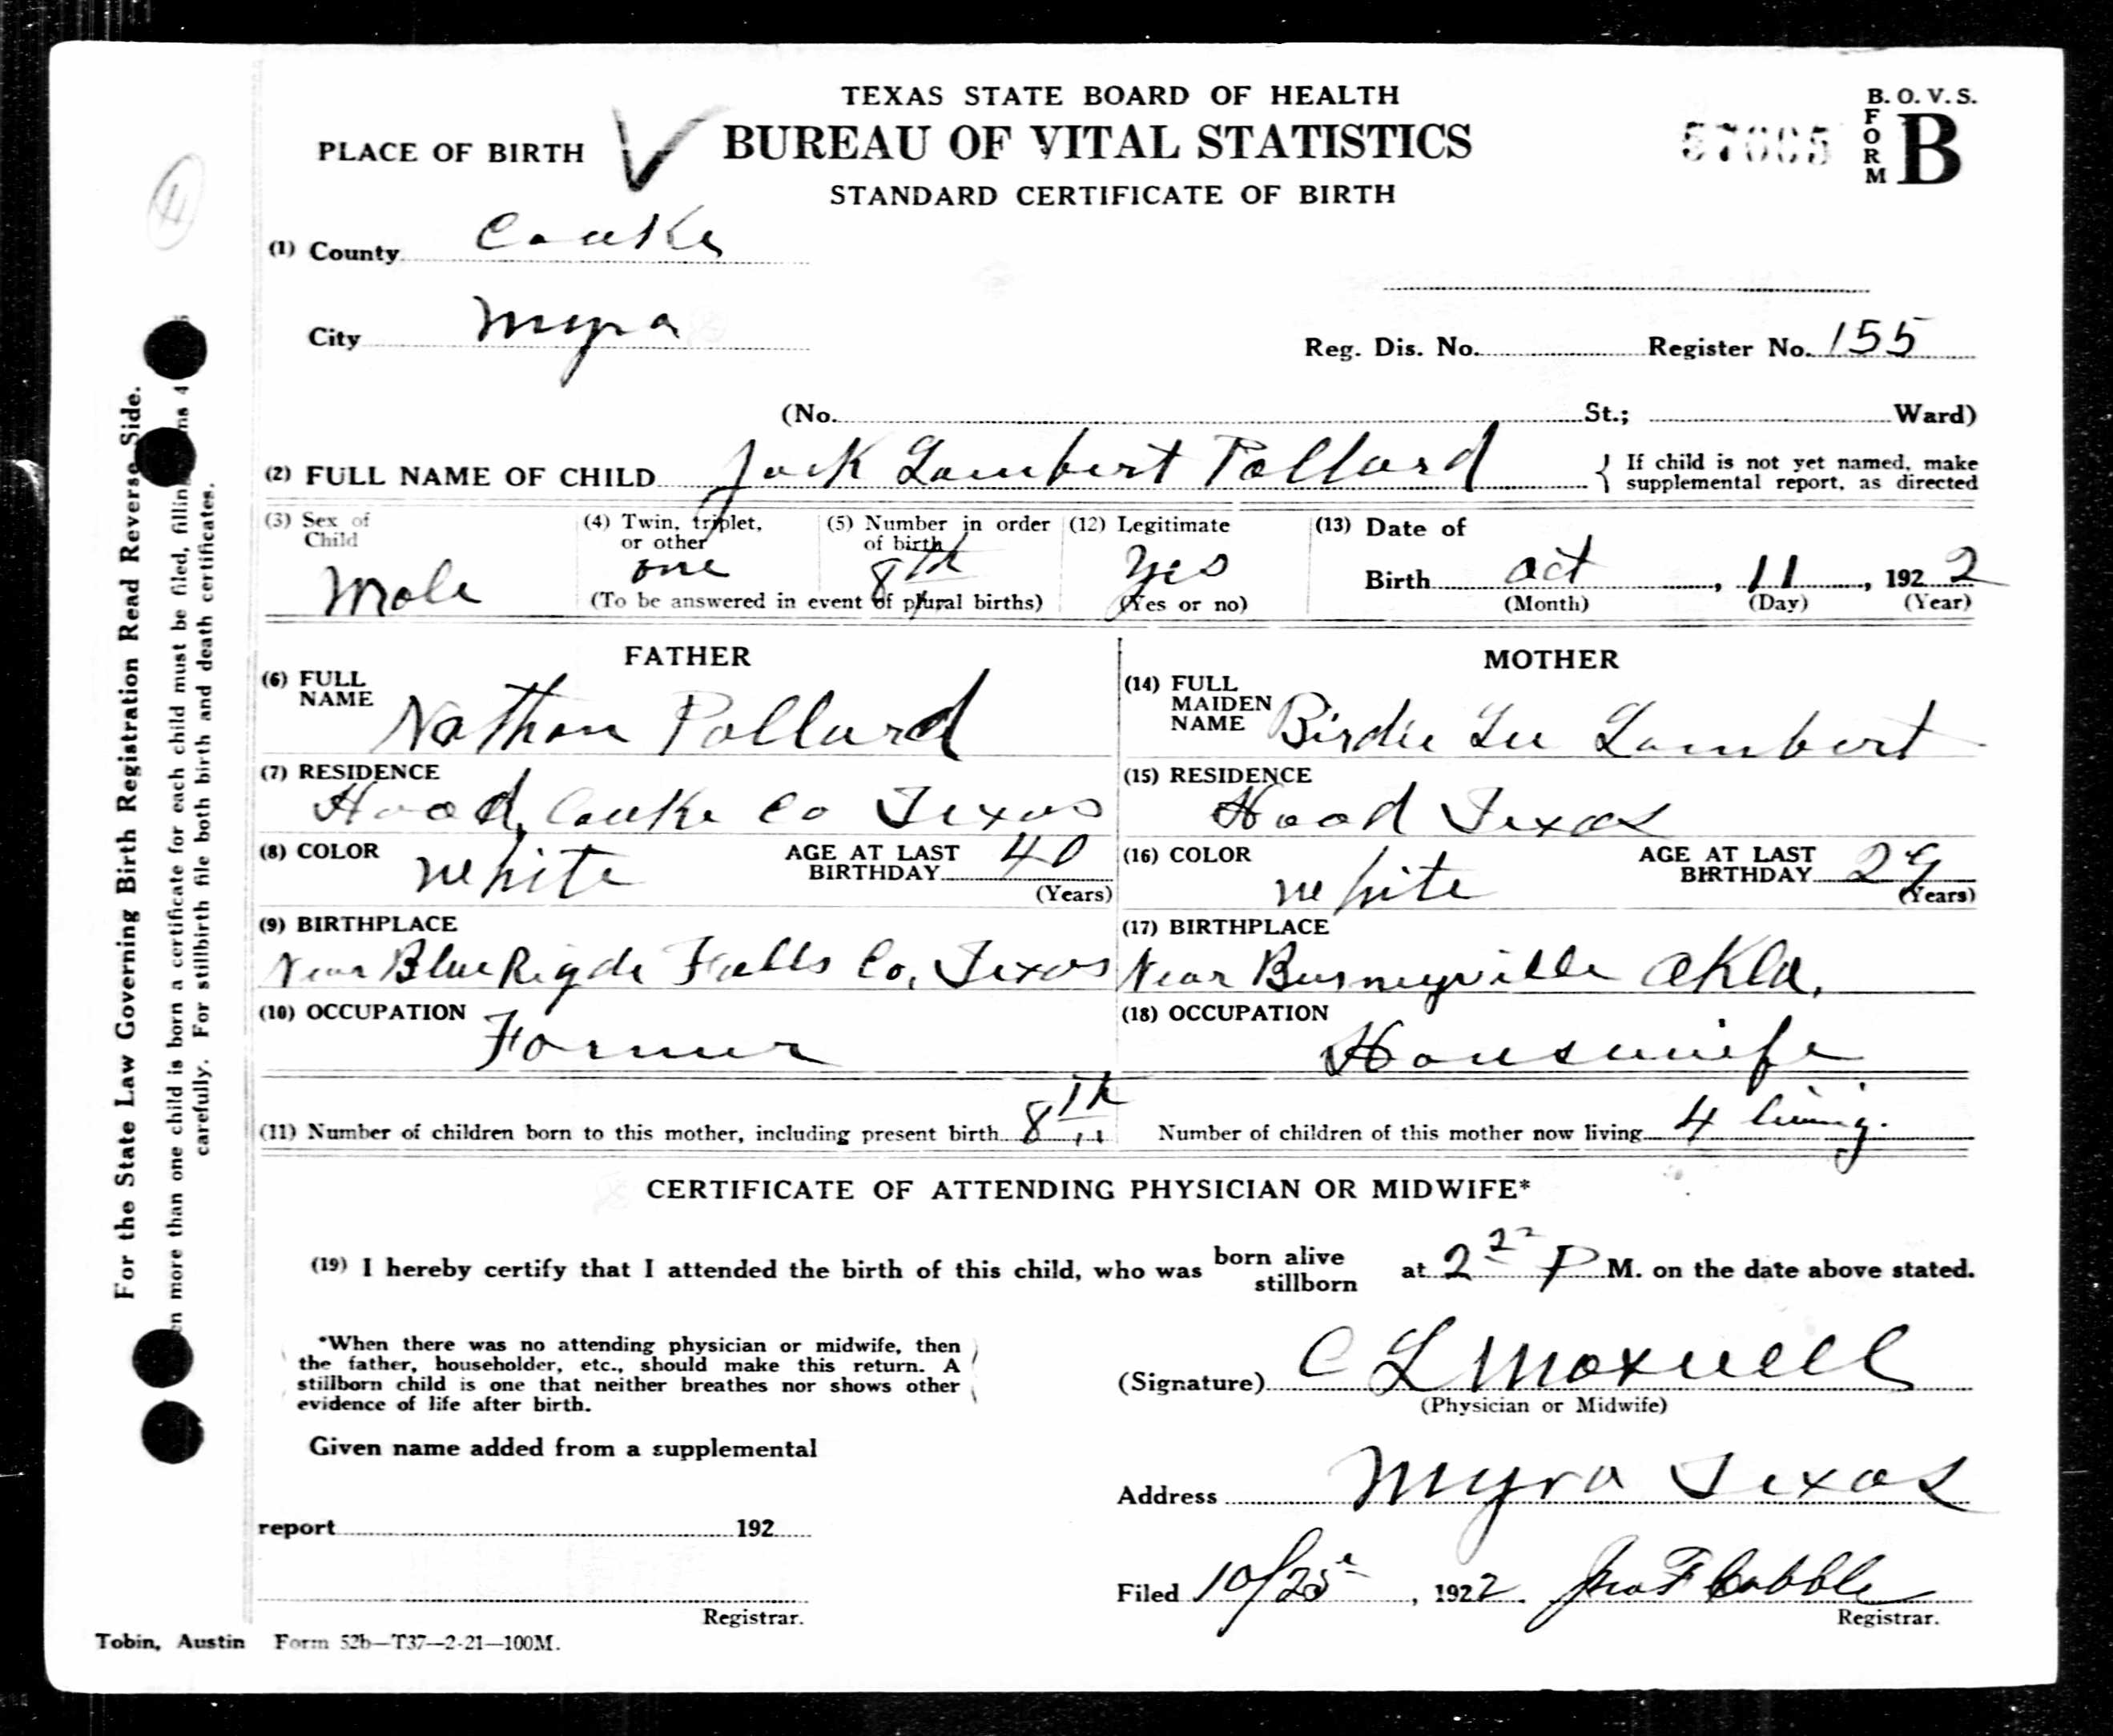 TEXAS STATE BOARD OF HEALTH
BUREAU OF VITAL STATISTICS
STANDARD CERTIFICATE OF BIRTH
B. O. V. S.
FORM B
PLACE OF BIRTH
(1) County Cooke
City Myra
Reg. Dis. No. Register No. 155
(No. St.; Ward)
(2) FULL NAME OF CHILD Jack Lambert Pollard { If child is not yet named, make
supplemental report, as directed
(3) Sex of Child Male
(4) Twin, triplet, or other one
(5) Number in order of birth 8th
(To be answered in event of plural births)
(12) Legitimate Yes
(Yes or no)
(13) Date of
Birth Oct, 11, 1922
(Month) (Day) (Year)
FATHER
(6) FULL NAME Nathan Pollard
(7) RESIDENCE
Hood, Cooke Co Texas
(8) COLOR White AGE AT LAST BIRTHDAY 40
(Years)
(9) BIRTHPLACE
Near Blue Rigde Falls Co, Texas
(10) OCCUPATION
Farmer
MOTHER
(14) FULL MAIDEN NAME Birdie Lee Lambert
(15) RESIDENCE
Hood Texas
(16) COLOR White AGE AT LAST BIRTHDAY 29
(Years)
(17) BIRTHPLACE
Near Burneyville Okla.
(18) OCCUPATION
Housewife
(11) Number of children born to this mother, including present birth 8th Number of children of this mother now living 4 living.
CERTIFICATE OF ATTENDING PHYSICIAN OR MIDWIFE*
(19) I hereby certify that I attended the birth of this child, who was born alive stillborn at 2 P M. on the date above stated.
*When there was no attending physician or midwife, then
the father, householder, etc., should make this return. A
stillborn child is one that neither breathes nor shows other
evidence of life after birth.
(Signature) C L Maxwell
(Physician or Midwife)
Given name added from a supplemental
report 192
Registrar.
Address Myra Texas
Filed 10/25, 1922. Jno F Cobble
Registrar.
Tobin, Austin Form 52b—T37—2-21—100M.
For the State Law Governing Birth Registration Read Reverse Side.
more than one child is born a certificate for each child must be filed, 4
carefully. For stillbirth file both birth and death certificates.